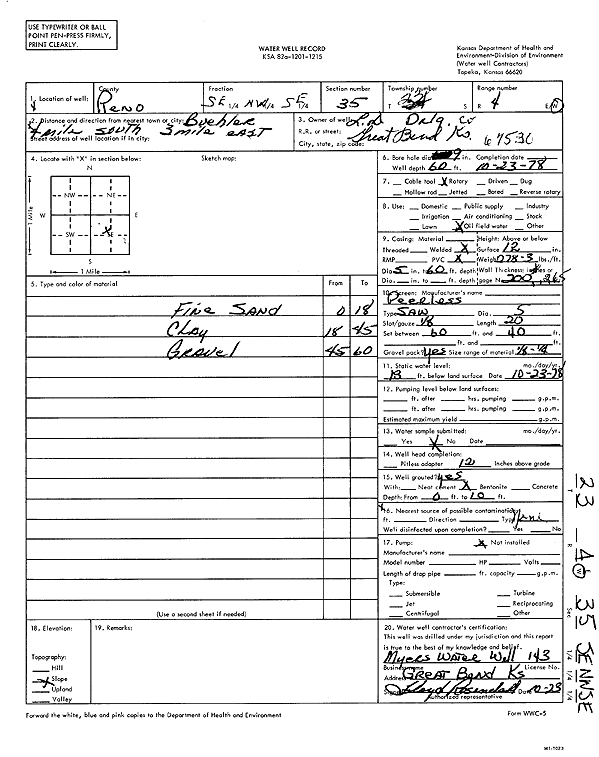 USE TYPEWRITER OR BALL
POINT PEN-PRESS FIRMLY,
PRINT CLEARLY.
WATER WELL RECORD
KSA 82a-1201-1215
Kansas Department of Health and
Environment-Division of Environment
(Water well Contractors)
Topeka, Kansas 66620
1. Location of well: County Reno Fraction SE 1/4 NW 1/4 SE 1/4 Section number 35 Township number T Range number R 4 E/W
2. Distance and direction from nearest town or city: Buehler
4 mile south 3 mile east
Street address of well location if in city:
3. Owner of well: Rod Drlg. Co
R.R. or street: Great Bend Ks.
City, state, zip code: 67530
4. Locate with "X" in section below: Sketch map:
N
NW NE
W E
SW SE
X
S
1 Mile
1 Mile
5. Type and color of material From To
Fine Sand 0 18
Clay 18 45
Gravel 45 60
(Use a second sheet if needed)
6. Bore hole dia. 9 in. Completion date
Well depth 60 ft. 10-23-78
7. Cable tool X Rotary Driven Dug
Hollow rod Jetted Bored Reverse rotary
8. Use: Domestic Public supply Industry
Irrigation Air conditioning Stock
Lawn X Oil field water Other
9. Casing: Material Height: Above or below
Threaded Welded X Surface 12 in.
RMP PVC X Weight lbs./ft.
Dia. 5 in. to 60 ft. depth Wall Thickness: inches or
Dia. in. to ft. depth gage No. 200
10. Screen: Manufacturer's name
Peerless
Type SAW Dia. 5
Slot/gauze 1/8 Length 20
Set between 60 ft. and 40 ft.
ft. and ft.
Gravel pack? yes Size range of material 1/8-1/4
11. Static water level: mo./day/yr.
13 ft. below land surface Date 10-23-78
12. Pumping level below land surfaces:
ft. after hrs. pumping g.p.m.
ft. after hrs. pumping g.p.m.
Estimated maximum yield g.p.m.
13. Water sample submitted: mo./day/yr.
Yes X No Date
14. Well head completion:
Pitless adapter 12 Inches above grade
15. Well grouted? yes
With: Neat cement X Bentonite Concrete
Depth: From 0 ft. to 10 ft.
16. Nearest source of possible contamination:
ft. Direction Type
Well disinfected upon completion? Yes No
17. Pump: X Not installed
Manufacturer's name
Model number HP Volts
Length of drop pipe ft. capacity g.p.m.
Type:
Submersible Turbine
Jet Reciprocating
Centrifugal Other
18. Elevation:
19. Remarks:
Topography:
Hill
X Slope
Upland
Valley
20. Water well contractor's certification:
This well was drilled under my jurisdiction and this report
is true to the best of my knowledge and belief.
Myers Water Well 143
Business name License No.
Address GREAT BEND Ks
Signed Date 10-23
Authorized representative
Forward the white, blue and pink copies to the Department of Health and Environment
Form WWC-5
T 23 R 4 W Sec 35 SE NW SE
1/4 1/4 1/4